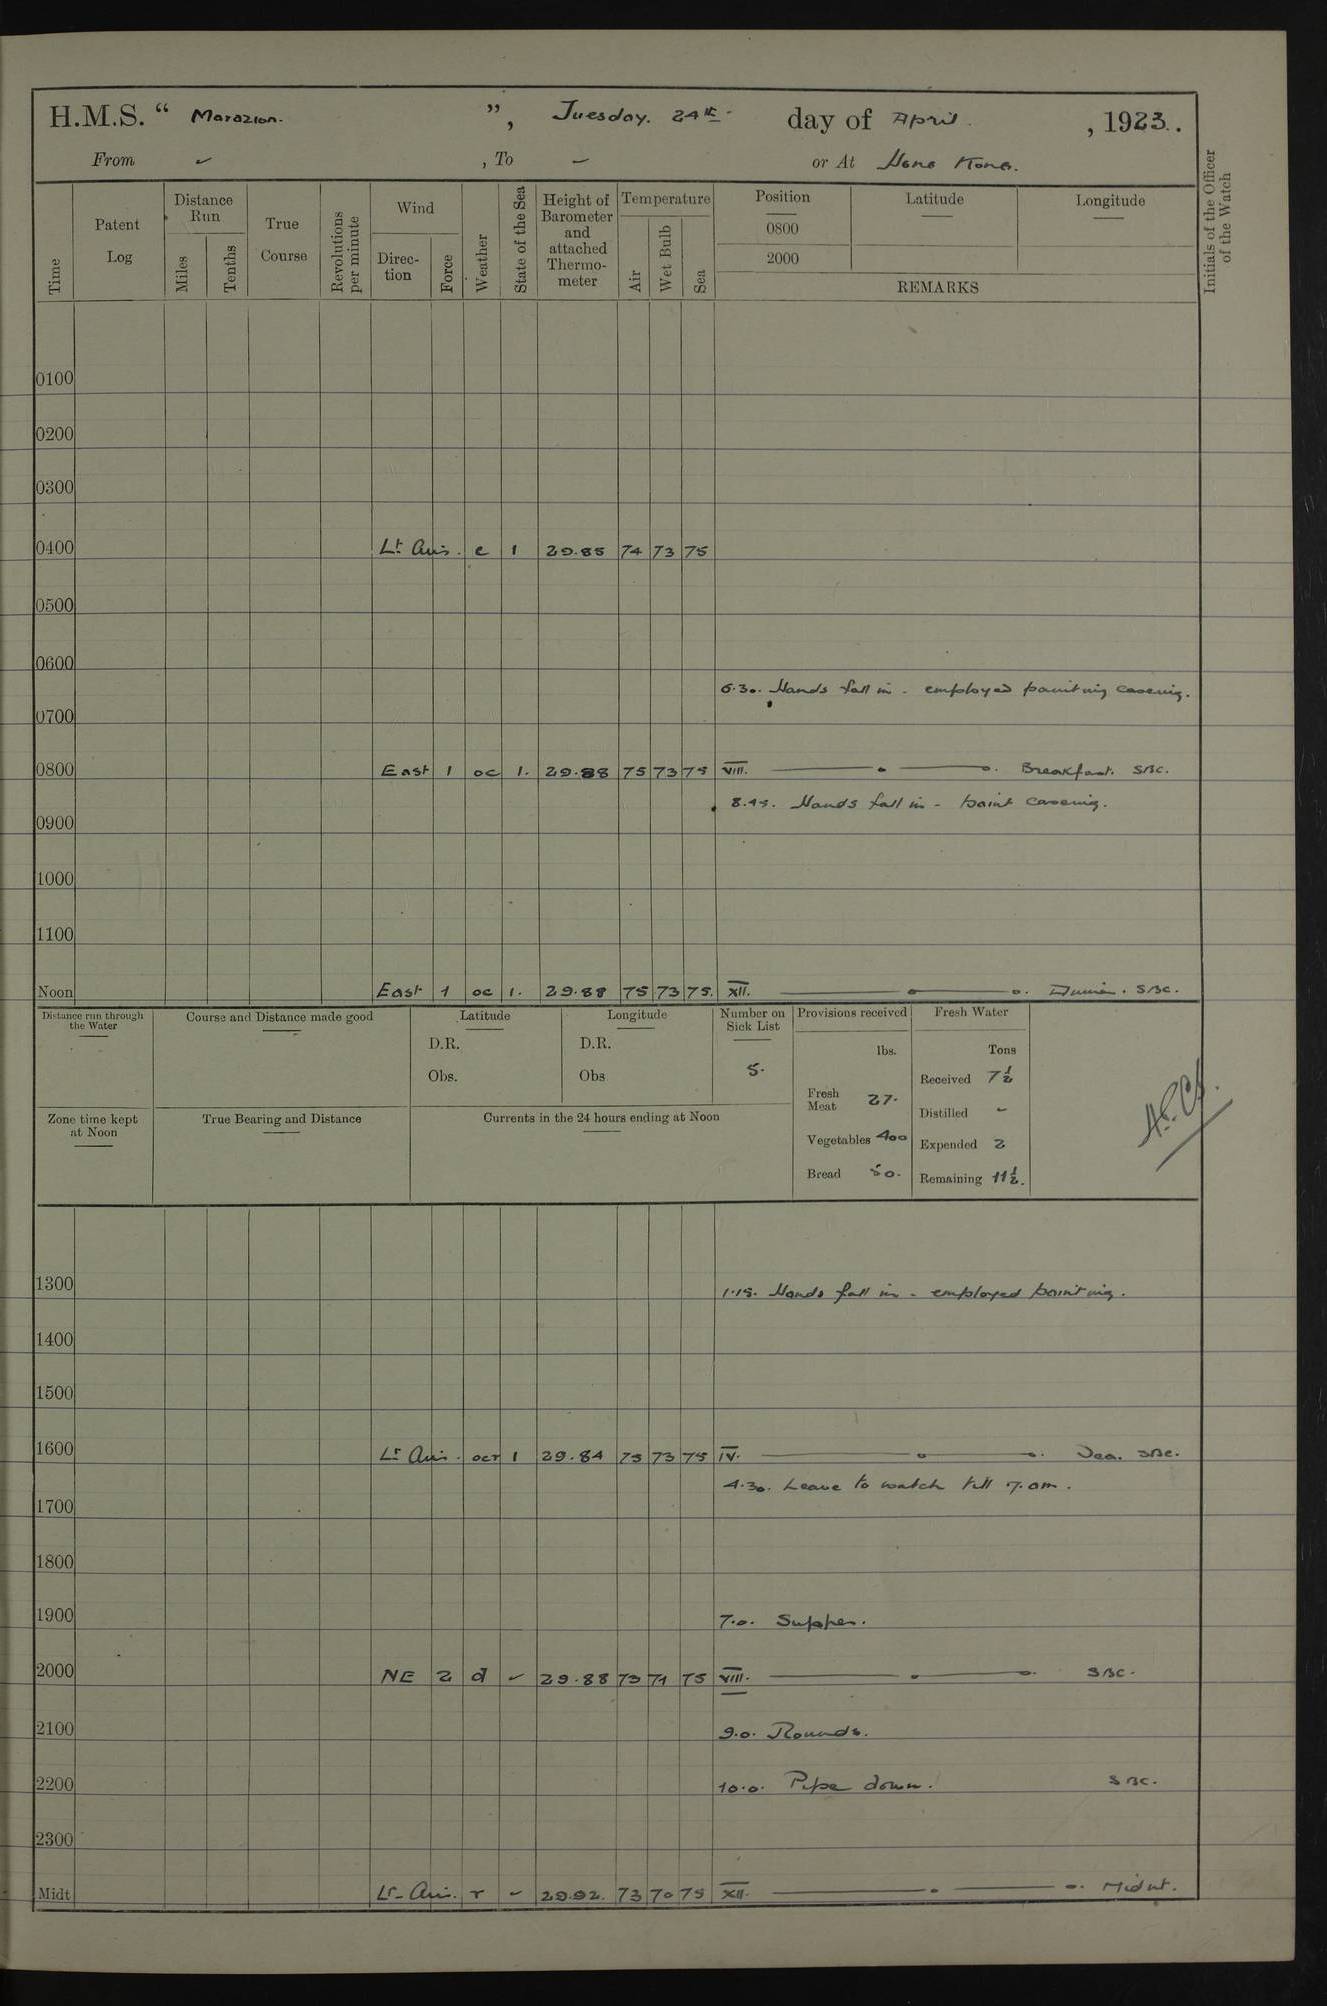 H.M.S. “ Marazion. ”, Tuesday. 24th. day of April. , 1923.
From ✓ , To – or At Hong Kong.
Time
Patent Log
Distance Run
Miles
Tenths
True Course
Revolutions per minute
Wind
Direc-tion
Force
Weather
State of the Sea
Height of Barometer and attached Thermo-meter
Temperature
Air
Wet Bulb
Sea
Position
Latitude
Longitude
0800
2000
REMARKS
Initials of the Officer of the Watch
0100
0200
0300
0400 Lt Airs. c 1 29.85 74 73 75
0500
0600
6.30. Hands fall in - employed painting casing.
0700
0800 East 1 oc 1. 29.88 75 73 75 VIII. Breakfast. SBC.
8.45. Hands fall in - paint casing.
0900
1000
1100
Noon East 1 oc 1. 29.88 75 73 75. XII. Dinner. SBC.
Distance run through the Water
Course and Distance made good
Latitude
D.R.
Obs.
Longitude
D.R.
Obs
Number on Sick List
5.
Provisions received
lbs.
Fresh Meat 27.
Vegetables 400
Bread 50.
Fresh Water
Tons
Received 7½
Distilled -
Expended 2
Remaining 11½.
Zone time kept at Noon
True Bearing and Distance
Currents in the 24 hours ending at Noon
1300 1.15. Hands fall in - employed painting.
1400
1500
1600 Lt Airs. ocr 1 29.84 75 73 75 IV. Tea. SBC.
4.30. Leave to watch till 7.am.
1700
1800
1900 7.0. Supper.
2000 NE 2 d ✓ 29.88 73 71 75 VIII. SBC.
2100 9.0. Rounds.
2200 10.0. Pipe down. SBC.
2300
Midt Lt Airs. r ✓ 29.92. 73 70 75 XII. Midnt.